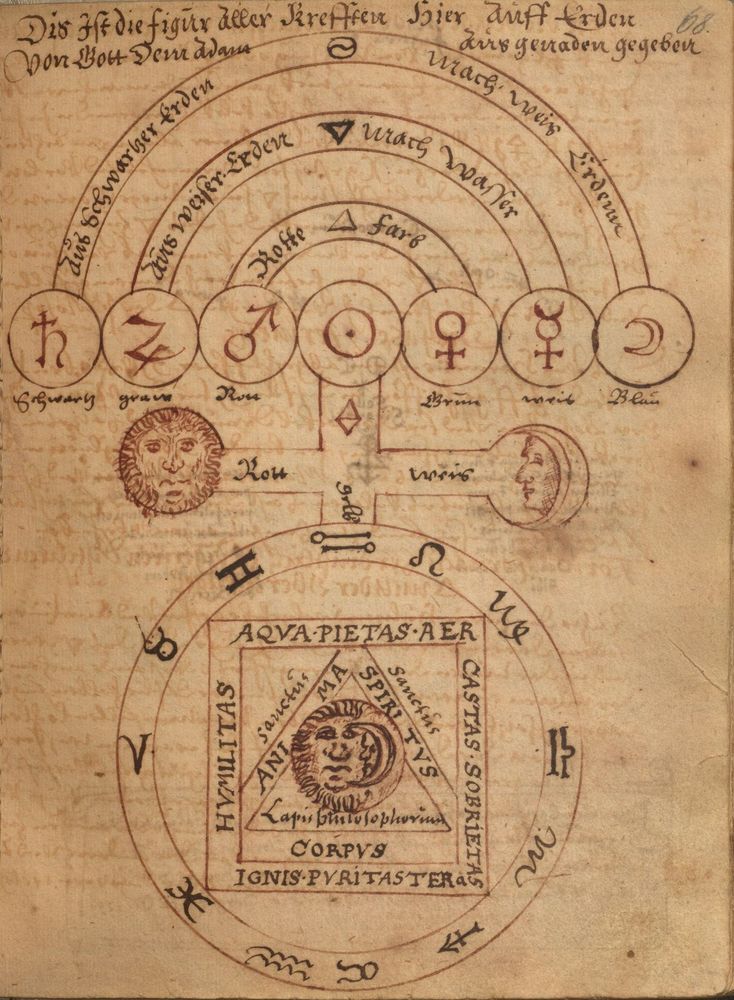 Dis Ist die figur Aller Krefften Hier Auff Erden
Von Gott Dem Adam Aus genaden gegeben
68.
Aus Schwartzer Erden
Mach weis Erdenn
Aus weiser Erden
Mach Wasser
Rotte Farb
Schwartz graw Rott Grün weis Blau
Rott weis
gelb
AQVA·PIETAS·AER
HVMILITAS
CASTAS·SOBRIETAS
sanctus
sanctus
ANIMA
SPIRITVS
Lapis philosophorum
CORPVS
IGNIS·PVRITAS TERa